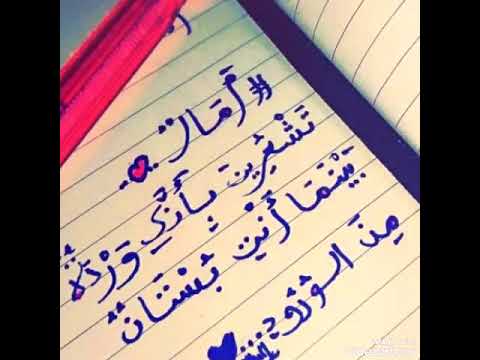 تَشْعُرِينَ بِأَنَّكِ وَرْدَةٌ
بَيْنَمَا أَنْتِ بُسْتَانٌ
مِنَ الوُرُودِ